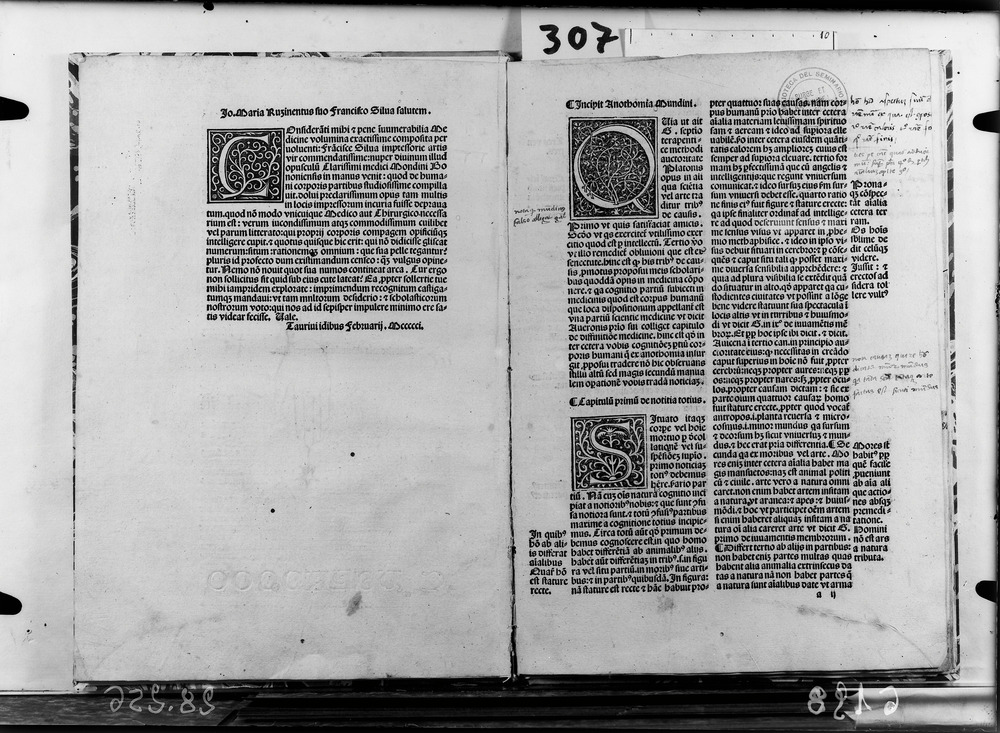 307
10
Jo. Maria Ruzinentus suo Francisco Silua salutem.
COnsiderãti mihi ⁊ pene innumerabilia Me
dicine volumina exactissime composita per
uellenti: Frãcisce Silua impressorie artis
vir commendatissime: nuper diuinum illud
opusculũ Clarissimi medici Mondini Bo
noniensis in manus venit: quod de huma-
ni corporis partibus studiosissime compilla
uit. oolui preclarissimum opus tam multis
in locis impressorum incuria fuisse deptaua
tum. quod nõ modo vnicuique Medico aut Chirurgico necessa
rium est: verum iucondissimum atqꝫ commodissimum cuilibet
vel parum litterato: qui proprij corporis compagem opificiũqꝫ
intelligere cupit. ⁊ quotus quisque hic erit: qui nõ didicisse gliscat
numerum: situm: rationemqꝫ omnium: que sua pelle tegantur?
pluris id profecto dum existimandum censeo: qꝫ vulgus opine-
tur. Nemo nõ nouit quot sua numos contineat arca. Cur ergo
non sollicitus sit quid sub eius cute lateat? Ea ꝓpter sollertie tue
mihi iampridem explorate: imprimendum recognitum castiga-
tumqꝫ mandaui: vt tam multorum desiderio: ⁊ scholasticorum
nostrorum voto: qui nos ad id sepisper impulere minimo ere sa-
tis videar fecisse. Uale.
Taurini idibus Februarij. Mcccci.
¶ Incipit Anothomia Mundini.
QUia vt ait
G. septio
terapenti-
ce methodi
auctoritate
Platonis
opus in ali
qua sciẽtia
vel arte tra
ditur tribꝰ
de causis.
Primo vt quis satisfaciat amicis.
Scðo vt qꝫ exerciteẽ vtilissimo exer
citio quod est ꝑ intellectũ. Tertio vo
vt illo remediet obliuioni que est ex
senectute. hinc est qꝫ his tribꝰ de cau-
sis ꝓmotus proposui meis scholari-
bus quoddã opus in medicina cõpo
nere. ⁊ qa cognitio partiũ subiecti in
medicinis quod est corpus humanũ
que loca dispositionum appellant est
vna partiũ scientie medicine vt dicit
Auerois prio sui colliget capitulo
de diffinitiõe medicine. hinc est qõ in
ter cetera vobis cognitiõeꝫ ꝑtiũ cor-
poris humani q̃ ex anothomia insur
git ꝓposui tradere nõ hic obseruans
stillũ altũ sed magis secundũ manua
lem opationẽ vobis tradã noticiaꝫ.
¶ Capitulũ primũ de notitia totius.
SItuato itaqꝫ
corpe vel hoie
mortuo ꝑ decol
lationẽ vel su-
spẽsiõeꝫ supino.
primo noticiaꝫ
totiꝰ debemus
hẽre. ꝫario par
tiũ. Nã cuꝫ ois natura cognitio inci
piat a notioribꝰ nobis: ⁊ que sunt ꝯfu
sa notiora sunt. ⁊ totũ ꝯfusiꝰ partibus
maxime a cognitione totius incipie-
mus. Circa totũ aũt qõ primum de-
bemus cognoscere est. in quo homo
habet differẽtiã ab animalibꝰ alijs.
habet aũt differẽtias in tribꝰ. s. in figu
ra vel situ partiũ. in moribꝰ siue arti-
bus: ⁊ in partibꝰ quibusdã. In figura:
nã stature est recte ⁊ hãc habuit pro-
In quibꝰ
hõ ab ali-
is differat
aialibus
Quar̃ hõ
est stature
recte.
pter quattuor suas causas. nam cor-
pus humanũ prio habet inter cetera
aialia materiam leuissimam spiritu-
sam ⁊ aeream ⁊ ideo ad supiora elle
uabilẽ. so inter cetera eiusdẽ quãti-
tatis calorem hꝫ ampliorẽꝫ cuius est
semper ad supiora eleuare. tertio for
mam hꝫ ꝑfectissimã quã cũ angelis ⁊
intelligentijs: que regunt vniuersum
comunicat. ⁊ ideo sursuꝫ eius fm sur-
sum vniuersi debet esse. quarto ratio
ne finis eiꝰ fuit figure ⁊ stature erecte:
qa ipse finaliter ordinaẽ ad intellige-
re ad quod deseruiunt sensus ⁊ maxi
me sensus visus vt apparet in ꝓhe-
mio methaphisice. ⁊ ideo in ipso vi-
sus debuit situari in cerebro: ⁊ ꝑ cõse-
quẽs ⁊ caput situ tali qꝫ posset maxi-
me diuersa sensibilia apprehẽdere: ⁊
quia ad plura visibilia se extẽdit quã
do situatur in alto. qõ apparet qa cu-
stodientes ciuitates vt possint a lõge
bene videre statuunt sua spectacula ĩ
locis altis vt in turribus ⁊ huiusmo-
di vt dicit G. in xꝰ. de iuuamẽtis mẽ
broꝝ. Et ꝓp̃ hoc ipse ibi dicit. ⁊ dicit.
Auicena i tertio can. in principio au-
ctoritate eius: qꝫ necessitas in creãdo
caput superius in hoiẽ nõ fuit ꝓpter
cerebrũ: neqꝫ propter aures: neqꝫ ꝓp
ter os: neqꝫ propter nares: sꝫ ꝓpter ocu-
los. propter causam dictam: ⁊ sic ex
parte oium quattuor causaꝝ homo
fuit stature erecte. ꝓpter quod vocat
antropos. i. planta reuersa ⁊ micro-
cosmus. i. minor mundus qa sursum
⁊ deorsum hꝫ sicut vniuersuꝫ ⁊ mun-
dus. ⁊ hec erat pria differentia. ¶ Se
cunda qa ex moribus vel arte. Mo
res eniꝫ inter cetera aialia habet ma
gis mansuetos: naꝫ est animal politi
cũ ⁊ ciuile. arte vero a natura omni
caret. non enim habet artem insitam
a natura vt aranea: ⁊ apes: ⁊ huius-
mõdi. ⁊ hoc vt participet oẽm artem
si enim haberet aliquaꝫ insitam a na
tura oi alia careret arte vt dicit G.
primo de iuuamentis membrorum.
¶ Differt tertio ab alijs in partibus:
non habet eniꝫ partes multas quas
habent alia animalia extrinsecus da
tas a natura nã non habet partes q̃
a natura sunt aialibus date vt arma
a ij
Prona-
qꝫ cũ spec-
tãt aialia
cetera ter
ram.
Os hois
sublime de
dit celũqꝫ
videre.
Jussit: ⁊
erectos ad
sidera tol
lere vultꝰ
Mores ⁊
habitꝰ ꝓp̃
quẽ facile
ꝓueniunt
ab aia ali
que actio-
nes absqꝫ
ꝓmedi-
tatione.
Homini
nõ est ars
a natura
tributa.
28.256
6198